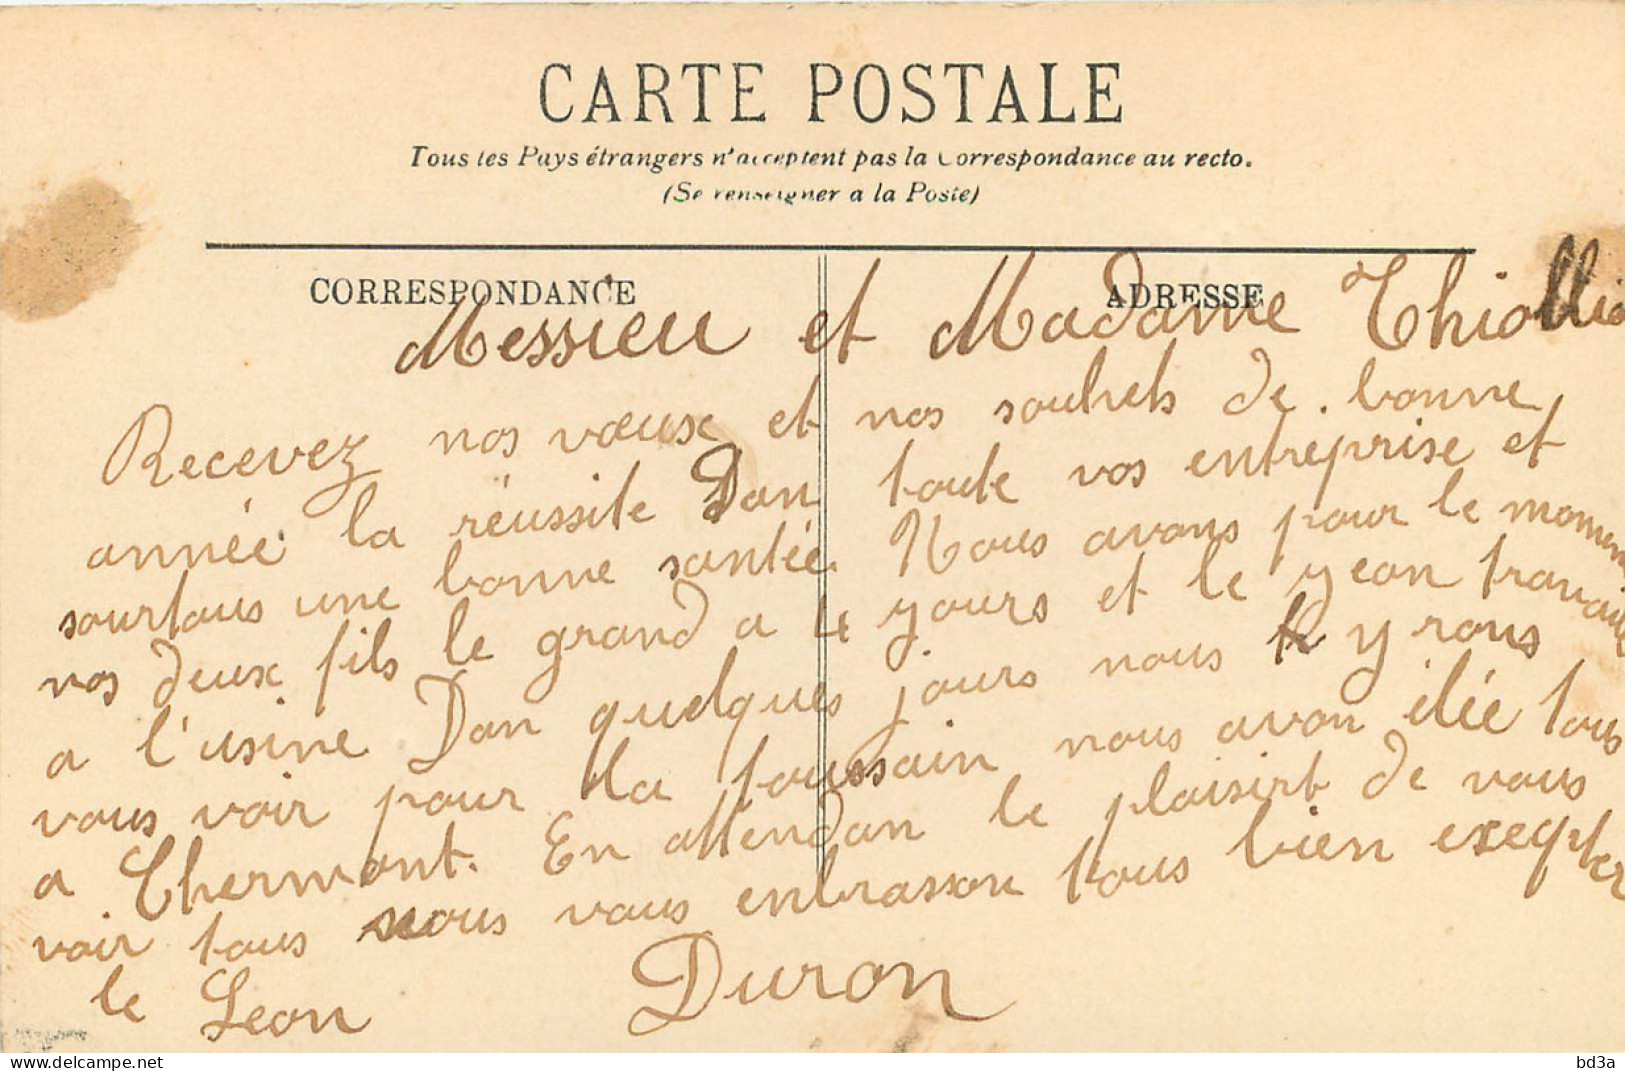 CARTE POSTALE
Tous les Pays étrangers n'acceptent pas la Correspondance au recto.
(Se renseigner a la Poste)
CORRESPONDANCE
ADRESSE
Messieu et Madame
Recevez nos vœuse et nos souhets de bonne
année la réussite Dan toute vos entreprise et
sourtous une bonne santée. Nous avons pour le moment
nos deux fils le grand a 4 yours et le yean travaille
a l'usine Dan quelques jours nous yrons
vous voir pour la toussain nous avon étée tous
a Chermont. En attendan le plaisirt de vous
voir tous nous vous enbrasson tous bien exepter
le Leon Duron
bd3a